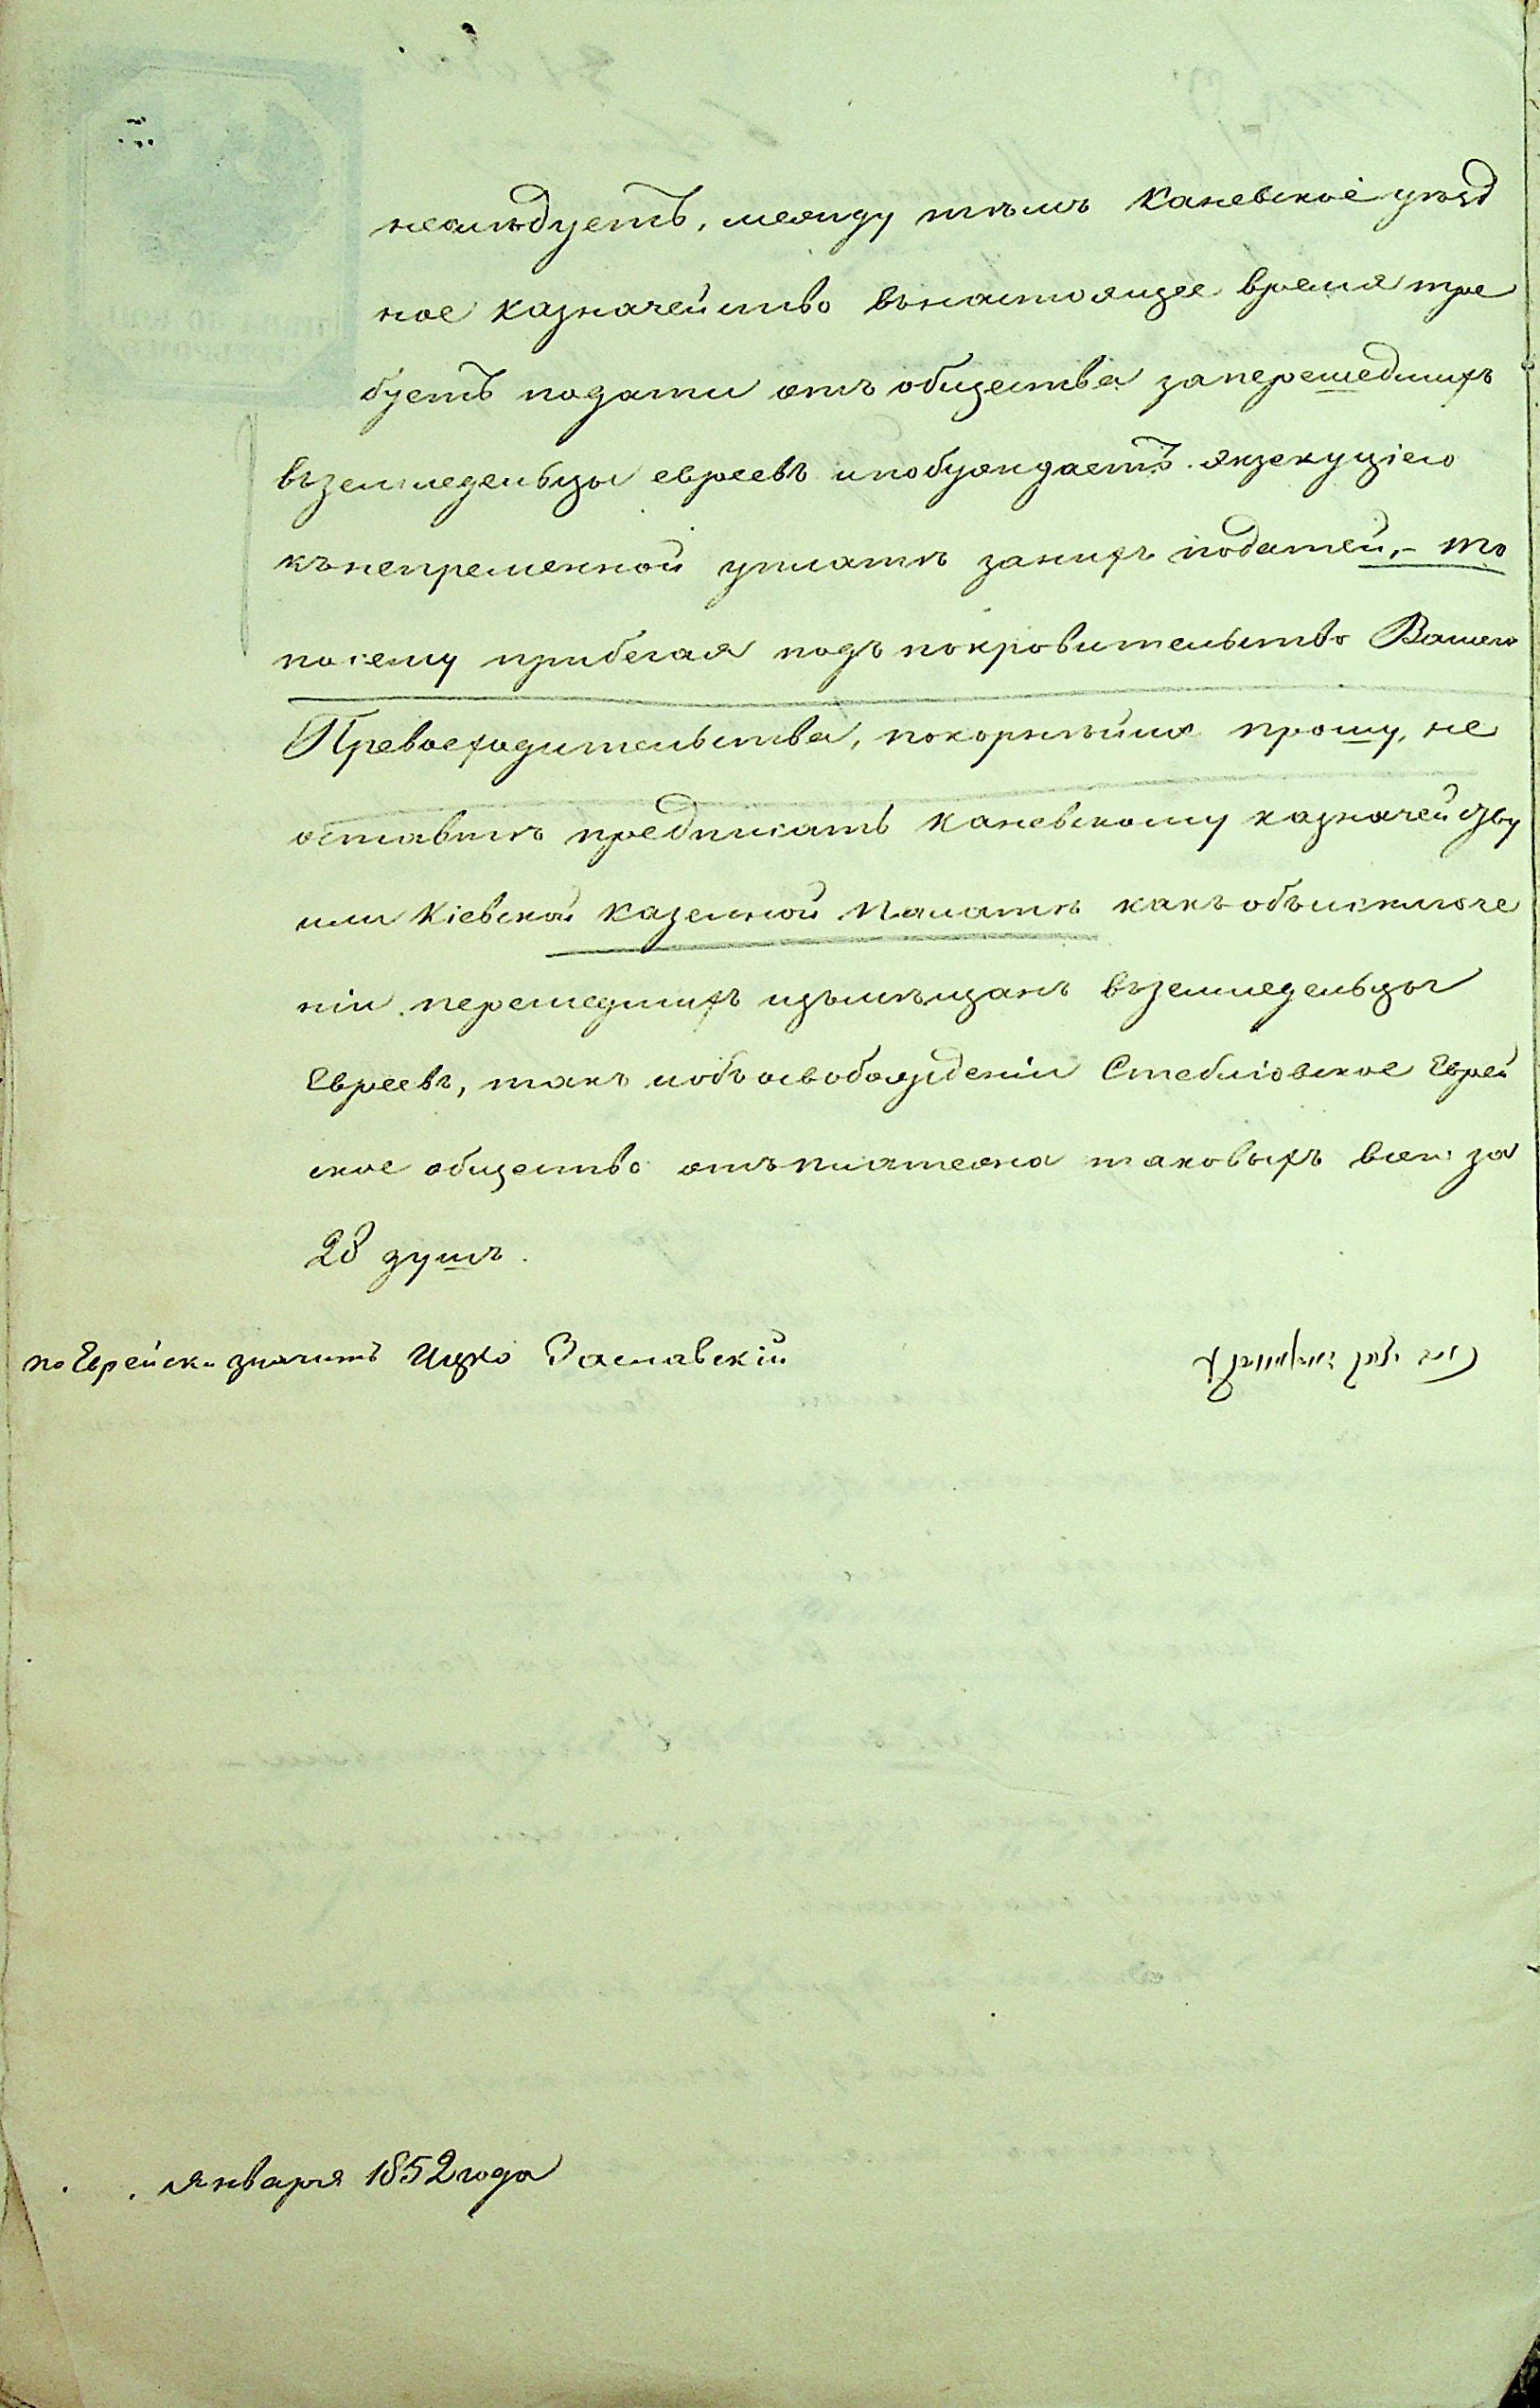 неслѣдуетъ, между тѣмъ Каневское уѣзд
ное казначейство внастоящее время тре
буетъ подати отъ общества заперешедшихъ
въземледельцы евреевъ ипобуждаетъ экзекуціею
къ непременной уплатѣ занихъ податей, – то
посему прибегая подъ покровительство Вашего
Превосходительства, покорнѣйше прошу, не
оставить предписать каневскому казначейству
или Кіевской казенной Палатѣ какъ объ исключе
ніи перешедшихъ изъ мѣщанъ въземледельцы
Евреевъ, такъ иобъ освобожденіи Стеблювское Еврей
ское общество отъ платежа таковыхъ за
28 душъ.
по Еврейски значитъ Ицко Заславскій
января 1852 года